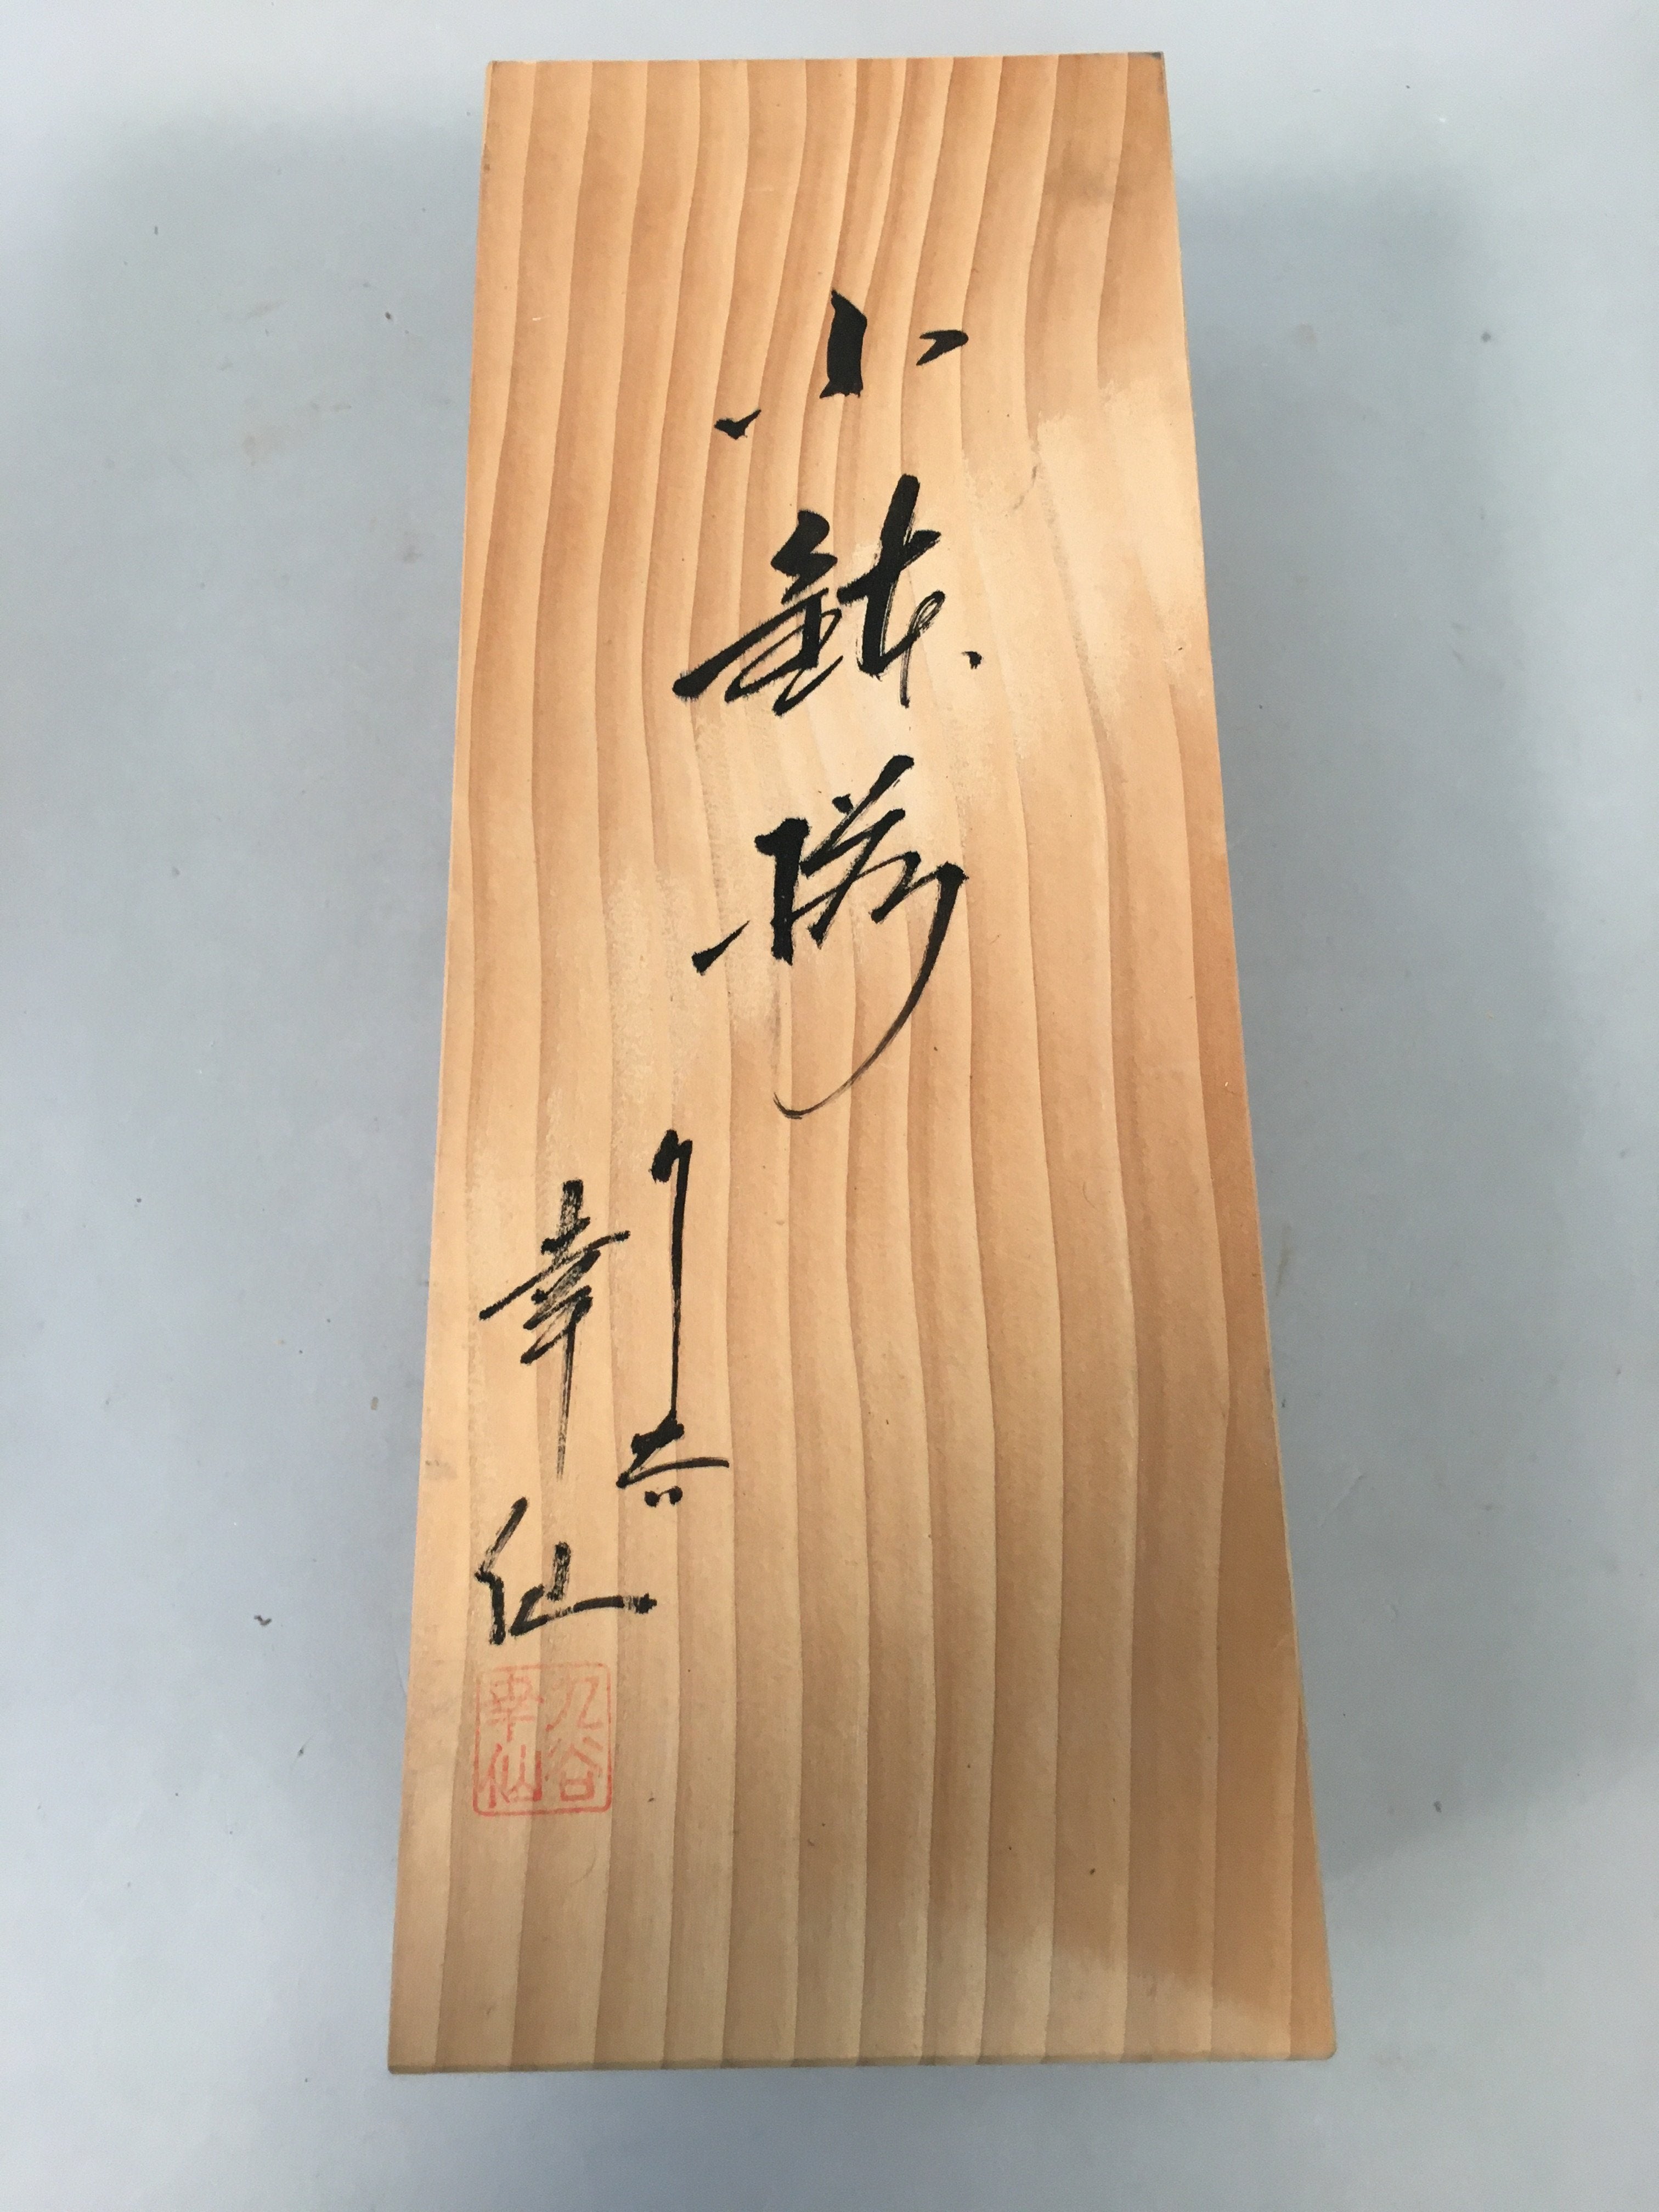 小鉢揃
幸仙
九谷
幸仙